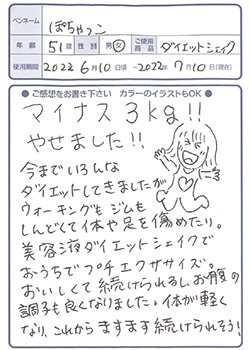 ペンネーム ぽちゃっこ
年齢 51歳 性別 男・女 ご使用商品 ダイエットシェイク
使用期間 2022年6月10日頃 〜2022年7月10日(現在)
● ご感想をお書き下さい カラーのイラストもOK ●
マイナス3kg!!
やせました!!
今までいろんな
ダイエットしてきましたが
ウォーキングも ジムも
しんどくて体や足を傷めたり。
美容液ダイエットシェイクで
おうちでプチエクササイズ。
おいしくて続けられるし、お腹の
調子も良くなりました。体が軽く
なり、これからますます続けられそう!